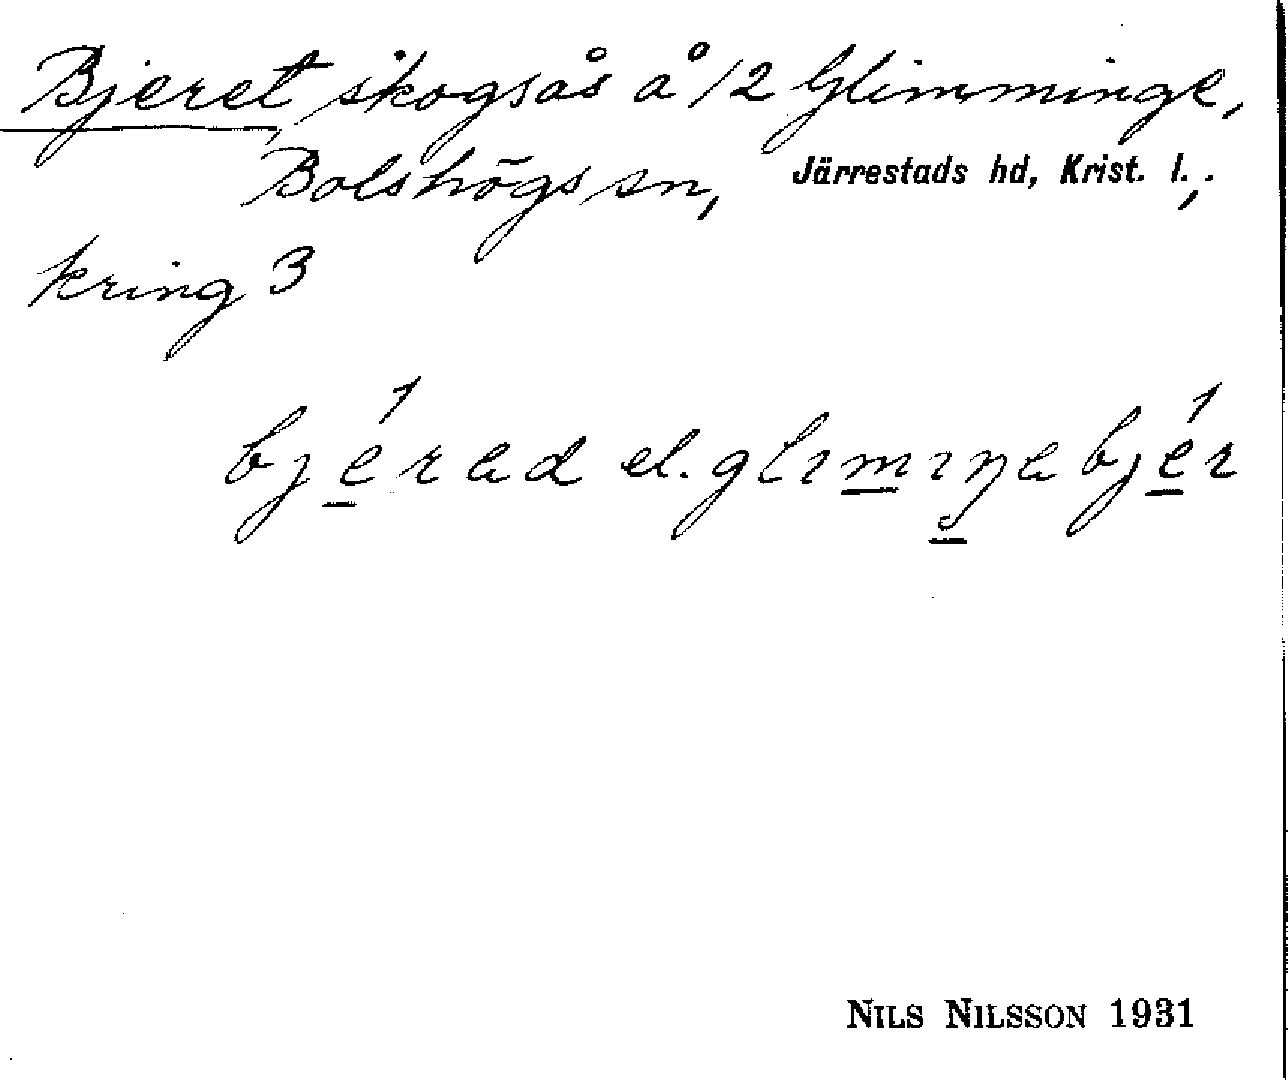 Bjeret, skogsås å 12 Glimminge,
Bolshögs sn, Järrestads hd, Krist. l.,
kring 3
bjérad el. glımıŋa bjér
NILS NILSSON 1931